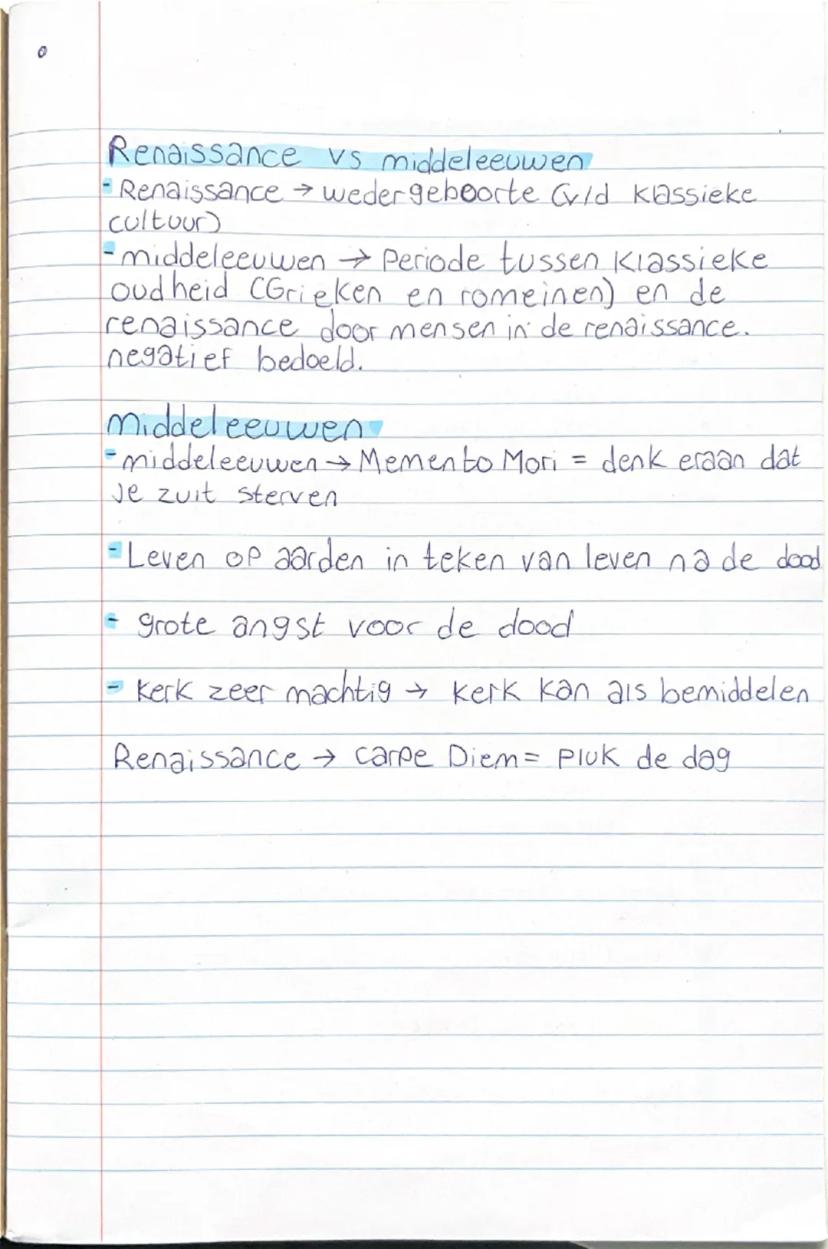 Renaissance vs middeleeuwen
- Renaissance → wedergeboorte (v/d klassieke
cultuur)
- middeleeuwen → Periode tussen klassieke
oudheid (Grieken en romeinen) en de
renaissance door mensen in de renaissance.
negatief bedoeld.
middeleeuwen
- middeleeuwen → Memento Mori = denk eraan dat
je zult sterven
- Leven op aarden in teken van leven na de dood
- grote angst voor de dood
- kerk zeer machtig → kerk kan als bemiddelen
Renaissance → Carpe Diem = Pluk de dag